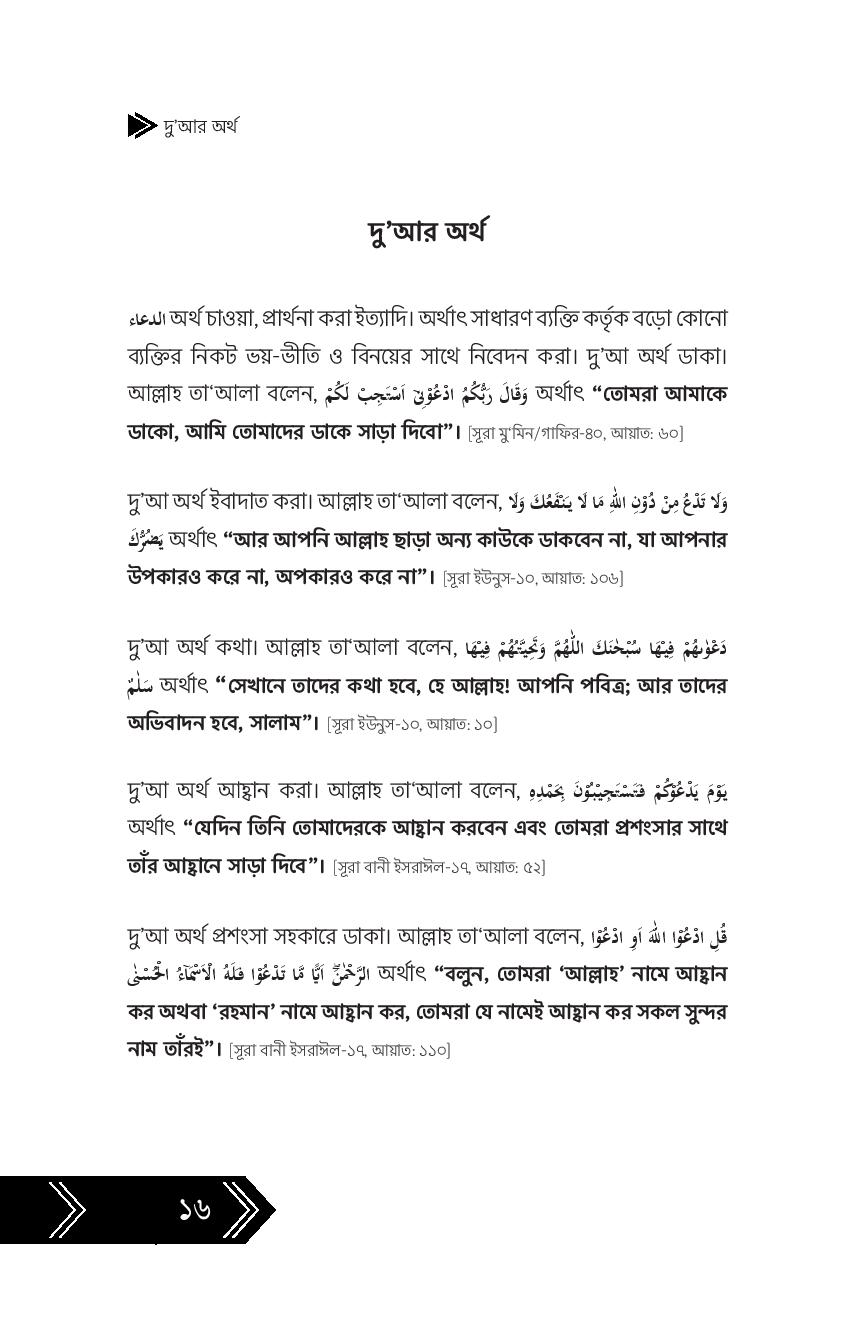 দু’আর অর্থ
দু’আর অর্থ
الدعاء অর্থ চাওয়া, প্রার্থনা করা ইত্যাদি। অর্থাৎ সাধারণ ব্যক্তি কর্তৃক বড়ো কোনো
ব্যক্তির নিকট ভয়-ভীতি ও বিনয়ের সাথে নিবেদন করা। দু’আ অর্থ ডাকা।
আল্লাহ তা‘আলা বলেন, وَقَالَ رَبُّكُمُ ادْعُوْنِيْٓ اَسْتَجِبْ لَكُمْ অর্থাৎ “তোমরা আমাকে
ডাকো, আমি তোমাদের ডাকে সাড়া দিবো”। [সূরা মু‘মিন/গাফির-৪০, আয়াত: ৬০]
দু’আ অর্থ ইবাদাত করা। আল্লাহ তা‘আলা বলেন, وَلَا تَدْعُ مِنْ دُوْنِ اللّٰهِ مَا لَا يَنْفَعُكَ وَلَا
يَضُرُّكَ অর্থাৎ “আর আপনি আল্লাহ ছাড়া অন্য কাউকে ডাকবেন না, যা আপনার
উপকারও করে না, অপকারও করে না”। [সূরা ইউনুস-১০, আয়াত: ১০৬]
দু’আ অর্থ কথা। আল্লাহ তা‘আলা বলেন, دَعْوٰىهُمْ فِيْهَا سُبْحٰنَكَ اللّٰهُمَّ وَتَحِيَّتُهُمْ فِيْهَا
سَلٰمٌ অর্থাৎ “সেখানে তাদের কথা হবে, হে আল্লাহ! আপনি পবিত্র; আর তাদের
অভিবাদন হবে, সালাম”। [সূরা ইউনুস-১০, আয়াত: ১০]
দু’আ অর্থ আহ্বান করা। আল্লাহ তা‘আলা বলেন, يَوْمَ يَدْعُوْكُمْ فَتَسْتَجِيْبُوْنَ بِحَمْدِهٖ
অর্থাৎ “যেদিন তিনি তোমাদেরকে আহ্বান করবেন এবং তোমরা প্রশংসার সাথে
তাঁর আহ্বানে সাড়া দিবে”। [সূরা বানী ইসরাঈল-১৭, আয়াত: ৫২]
দু’আ অর্থ প্রশংসা সহকারে ডাকা। আল্লাহ তা‘আলা বলেন, قُلِ ادْعُوْا اللّٰهَ اَوِ ادْعُوْا
الرَّحْمٰنَۗ اَيًّا مَّا تَدْعُوْا فَلَهُ الْاَسْمَآءُ الْحُسْنٰى অর্থাৎ “বলুন, তোমরা ‘আল্লাহ’ নামে আহ্বান
কর অথবা ‘রহমান’ নামে আহ্বান কর, তোমরা যে নামেই আহ্বান কর সকল সুন্দর
নাম তাঁরই”। [সূরা বানী ইসরাঈল-১৭, আয়াত: ১১০]
১৬